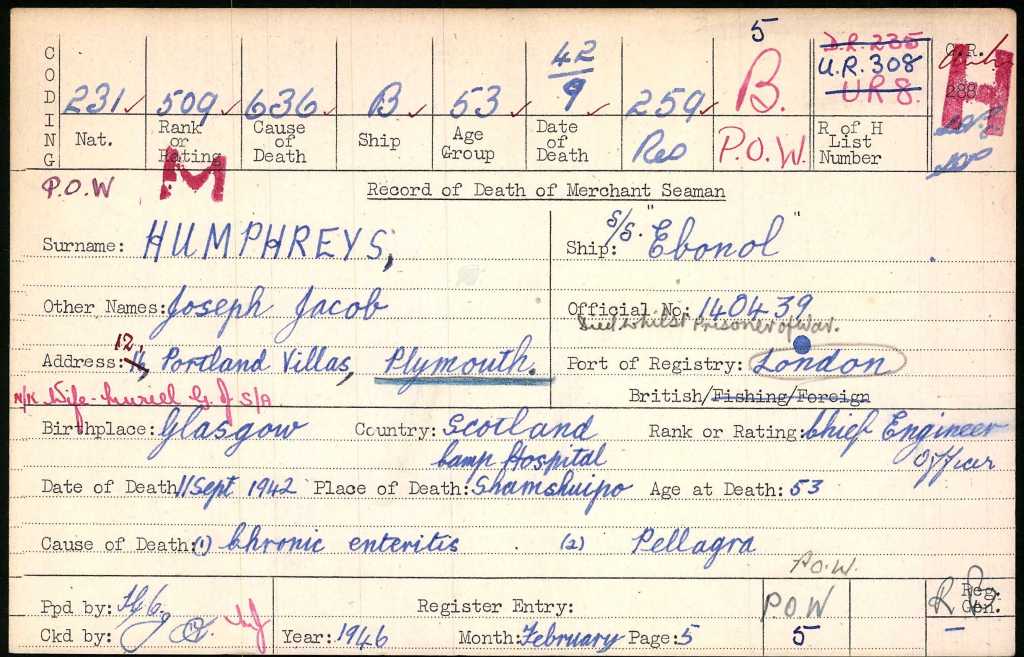 5
42
D.R. 235
U.R. 308
U R 8.
H
CODING
231 509 636 B 53 9 259 B.
Nat. Rank or Rating Cause of Death Ship Age Group Date of Death Res P.O.W. R of H List Number
P.O.W M
Record of Death of Merchant Seaman
Surname: HUMPHREYS, S/S. Ship: "Ebonol"
Other Names: Joseph Jacob Official No: 140439
Died whilst Prisoner of War.
Address: 12, Portland Villas, Plymouth. Port of Registry: London
British/Fishing/Foreign
N/K Wife - Muriel G. of S/A
Birthplace: Glasgow Country: Scotland Rank or Rating: Chief Engineer Officer
Camp Hospital
Date of Death 11 Sept 1942 Place of Death: Shamshuipo Age at Death: 53
Cause of Death: (1) Chronic enteritis (2) Pellagra
P.O.W.
Ppd by: Register Entry: P.O.W Reg. Gen.
Ckd by: Year: 1946 Month: February Page: 5 5 —